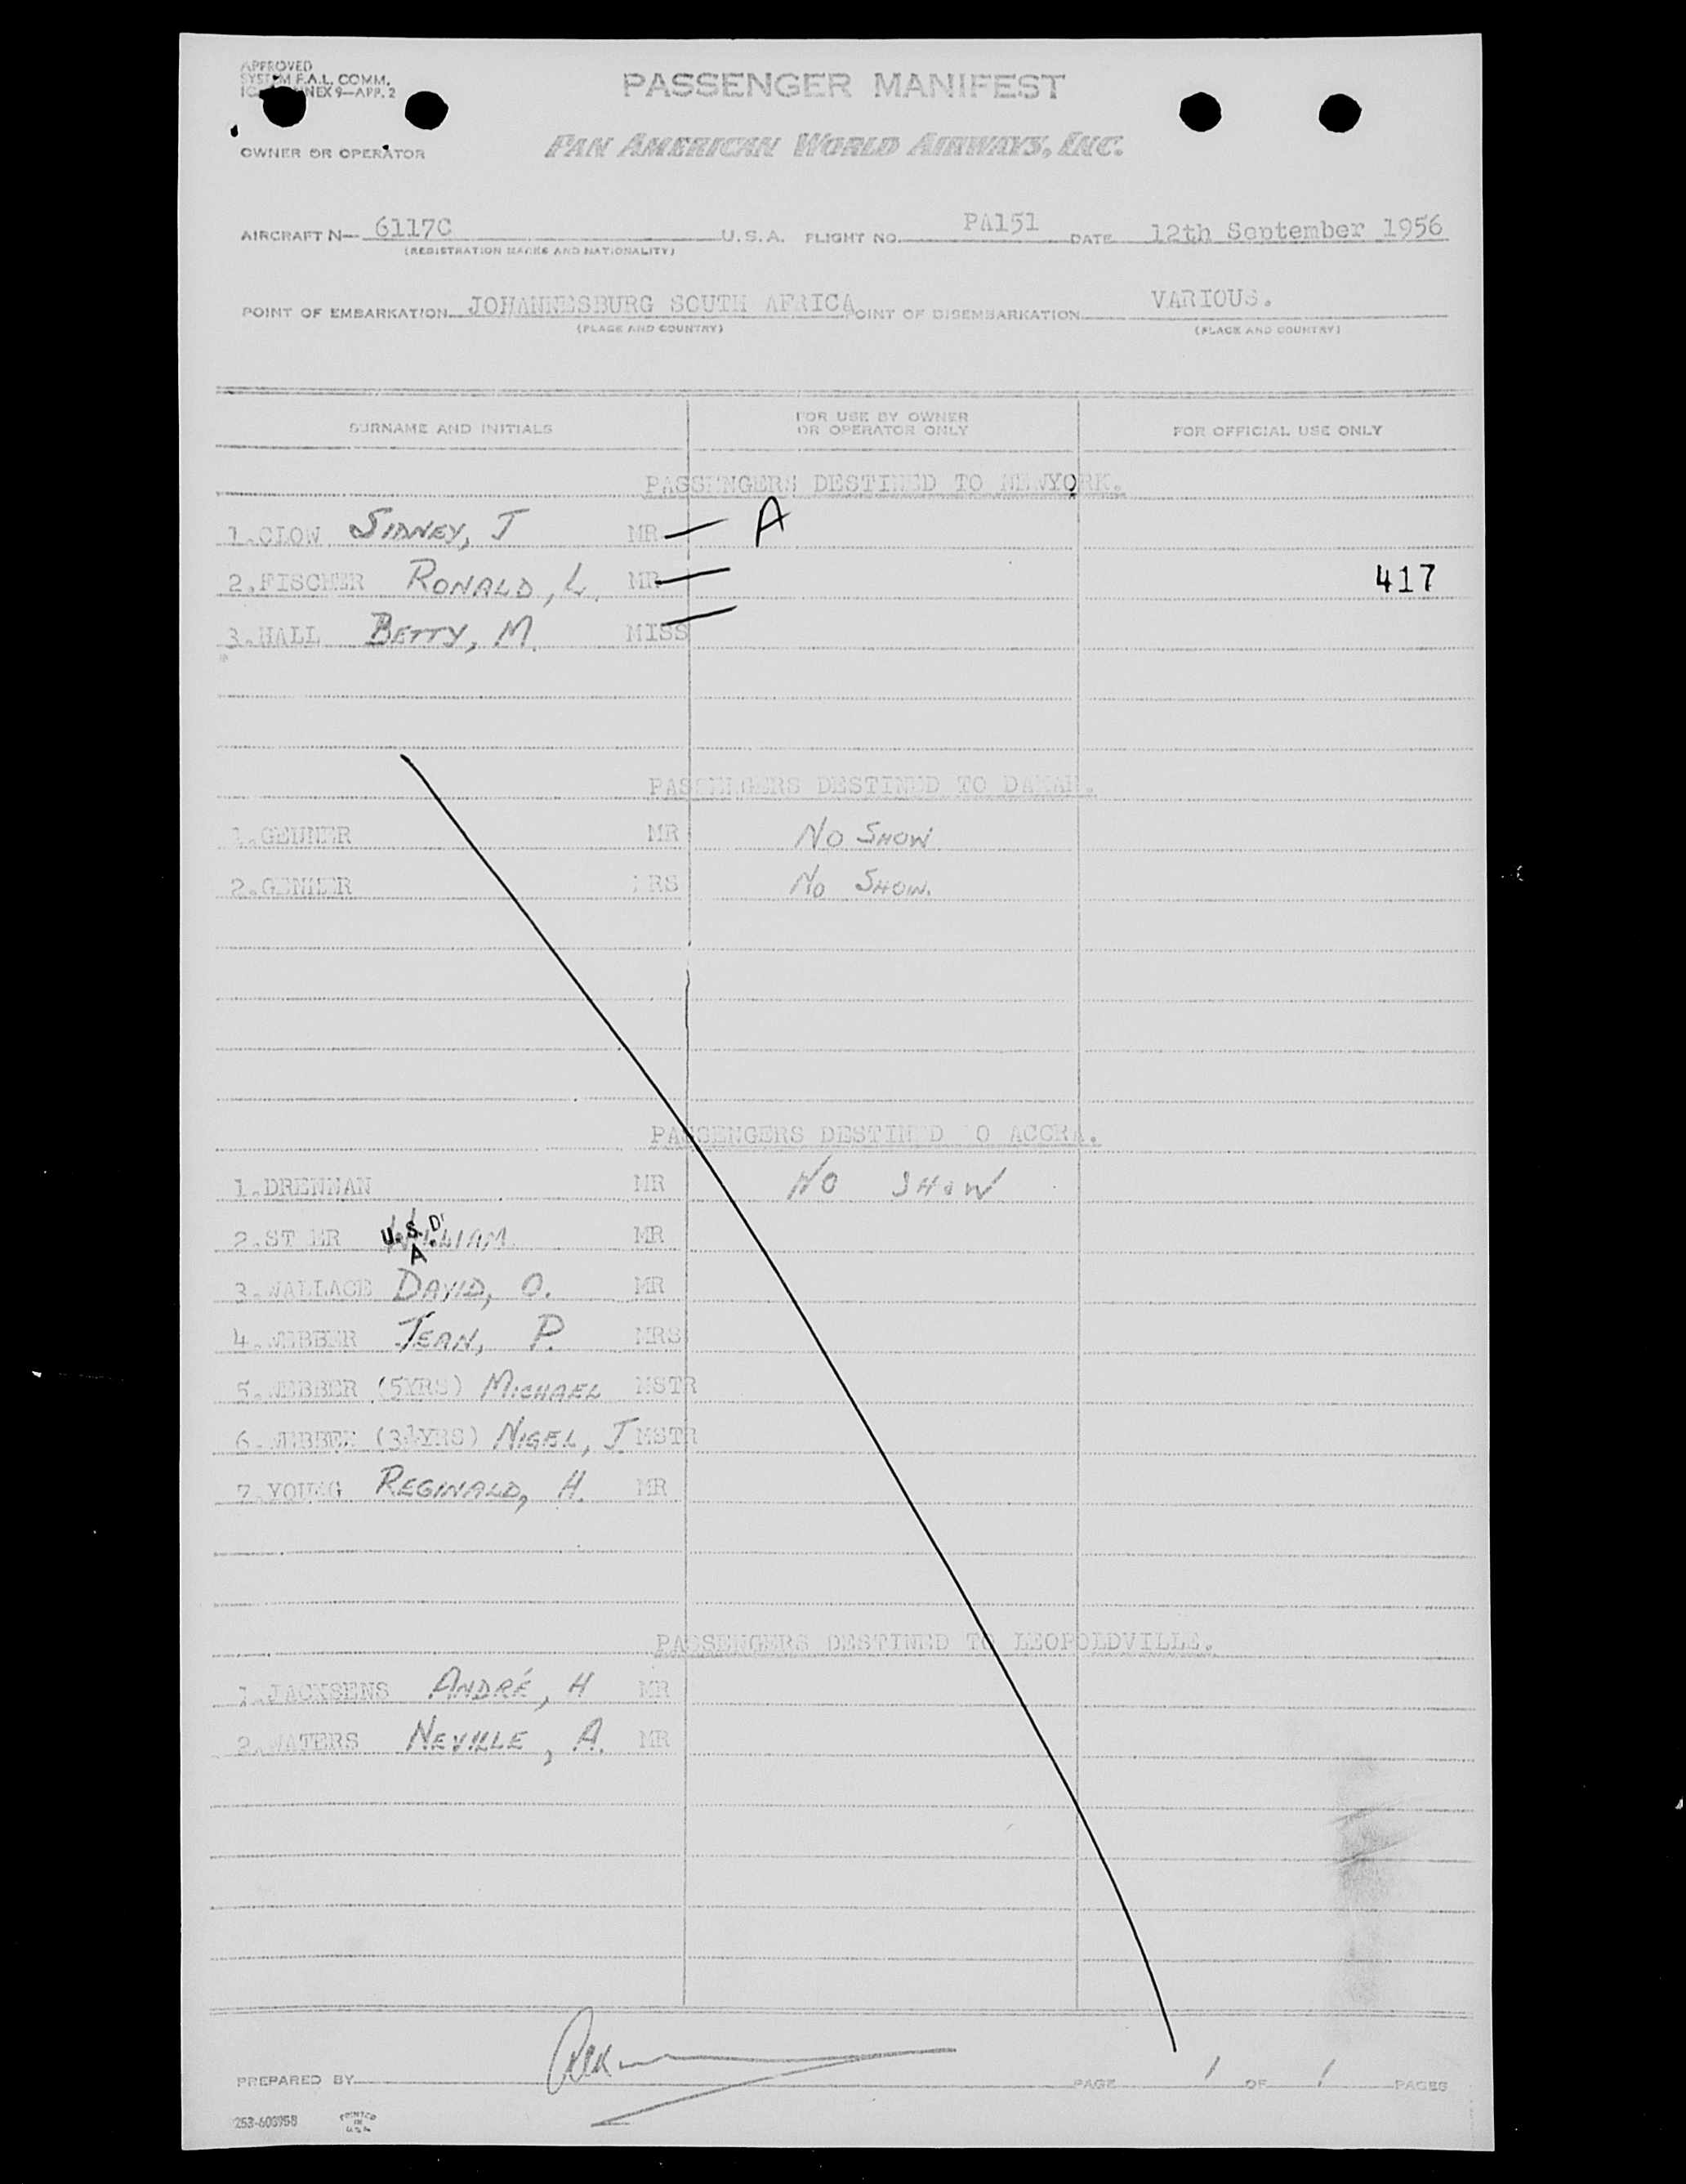 APPROVED
SYSTEM F.A.L. COMM.
NEX 9—APP. 2
PASSENGER MANIFEST
OWNER OR OPERATOR PAN AMERICAN WORLD AIRWAYS, INC.
AIRCRAFT N— 6117C U.S.A. FLIGHT NO. PA151 DATE 12th September 1956
(REGISTRATION MARKS AND NATIONALITY)
POINT OF EMBARKATION JOHANNESBURG SOUTH AFRICA OINT OF DISEMBARKATION VARIOUS.
(PLACE AND COUNTRY) (PLACE AND COUNTRY)
SURNAME AND INITIALS FOR USE BY OWNER OR OPERATOR ONLY FOR OFFICIAL USE ONLY
PASSENGERS DESTINED TO NEWYORK.
1.CLOW SIDNEY, J MR — A
2.FISCHER RONALD, L. MR — 417
3.HALL BETTY, M. MISS —
PASSENGERS DESTINED TO DAKAR.
1.GENNER MR NO SHOW
2.GENNER MRS NO SHOW.
PASSENGERS DESTINED TO ACCRA.
1.DRENNAN MR NO SHOW
2.ST ER WILLIAM MR
U.S.D.
A
3.WALLACE DAVID, O. MR
4.WEBBER JEAN, P. MRS
5.WEBBER (5YRS) MICHAEL MSTR
6.WEBBER (3½YRS) NIGEL, J MSTR
7.YOUNG REGINALD, H. MR
PASSENGERS DESTINED TO LEOPOLDVILLE.
1.JACKSENS ANDRÉ, H MR
2.WATERS NEVILLE, A. MR
PREPARED BY PAGE 1 OF 1 PAGES
253-603958 PRINTED
IN
U.S.A.